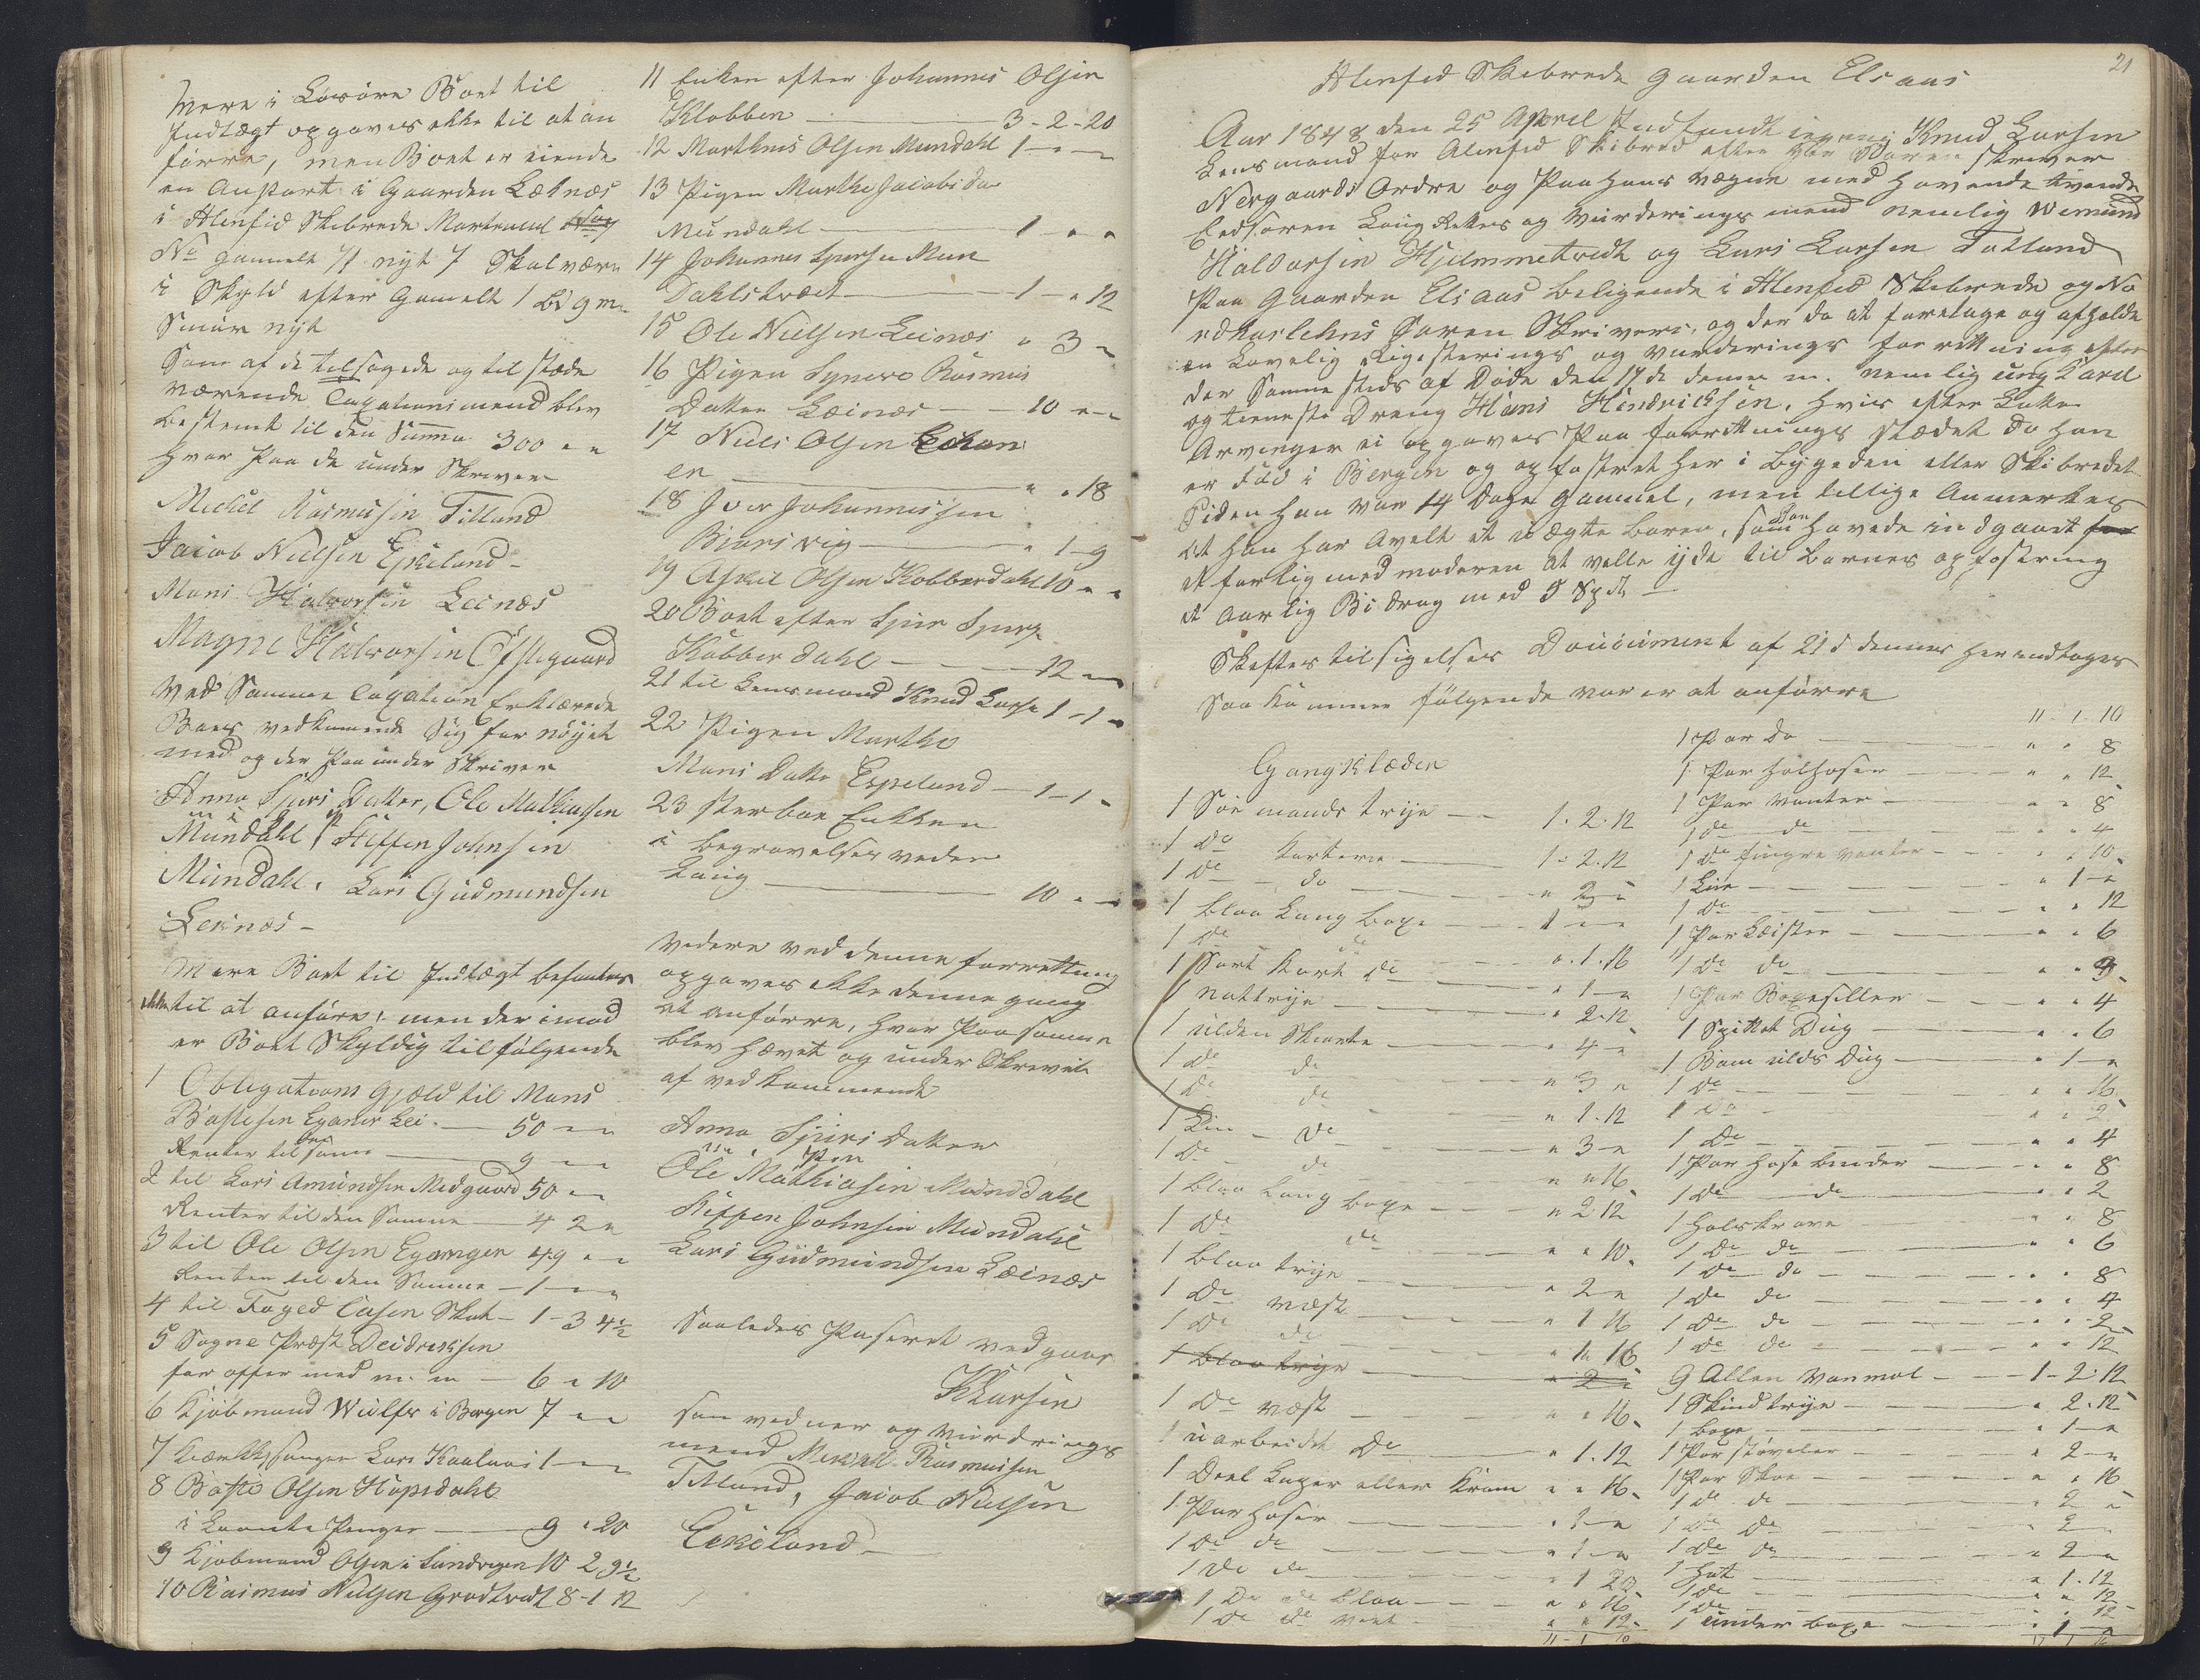 Mere i Løsøre Boet til
Indtægt opgaves ekke til at an
førre, men Boet er eiende
en Anpart i Gaarden Leknæs
i Alenfid Skebrede Martrecul
No gammelt 71 nyt 7 Skal være
i Skyld efter Gamelt 1 Bd 9 m
Smør nyt
Som af de tilsagede og til stæde
værende Taxationsmend blev
bestemt til den Summa 300 " "
hvor paa de under Skriver
Mickel Rasmusen Titland
Jacob Nielsen Eskeland -
Mons Halvorsen Leinæs
Magne Halvorsen Østegaard
Ved Samme Taxation Erklærede
Boets vedkommende Sig for nøyet
med og der paa under Skriver
Anna Sjurs Datter, Ole Mathiassen
Mundahl Steffen Johnsen
Mundahl, Lars Gudmundsen
Leinæs -
Mere Boet til Indtægt befantes
ekke til at anføre, men der imod
er Boet Skyldig til følgende
1 Obligations Gjæld til Mons
Bastesen Eganes Lei 50 " "
Renter til den samme 9 " "
2 til Lars Amundsen Midgaard 50 " "
Renter til den Samme 4 2 "
3 til Ole Olsen Eganger 49 " "
Renter til den Samme 1 " "
4 til Foged Casen Skat 1 - 3 4½
5 Sogne Præst Deidreksen
for offer med m. m 6 " 10
6 Kjøbmand Wulfs i Bergen 7 " "
7 Kierkesanger Lars 1 " "
8 Baste Olsen Hopsdahl
i Laante Penger 9 " 20
9 Kjøbmand Olsen i Sandvigen 10 2 9½
10 Rasmus Nielsen 8 - 1 12
11 Enken efter Johannes Olsen
Klobben 3 - 2 - 20
12 Marthnes Olsen Mundahl 1 " "
13 Pigen Marthe Jacobs Da
Mundahl 1 " "
14 Johannes Sjursen Mun
Dahlstræet 1 " 12
15 Ole Nielsen Leinæs " 3 "
16 Pigen Synneve Rasmus
Datter Leinæs 10 " "
17 Niels Olsen
en " " 18
18 Iver Johannessen
Biørsvig " 1 - 9
19 Askiel Olsen Kobberdahl 10 " "
20 Boet efter Sjur Sjurs
Kobberdahl 12 "
21 til Lensmand Knud Larsen 1 - 1 "
22 Pigen Marthe
Mons Datter Espeland 1 - 1 -
23 sterboe Enkken
i begravelses veder
Laug 10 " "
Videre ved denne forrettning
opgaves ekke denne gang
at anførre, hvor paa samme
blev hævet og under Skrevet
af ved kommende
Anna Sjurs Datter
m p Pen
Ole Mathiasen Mundahl
Steffen Johnsen Mundahl
Lars Gudmundsen Leinæs
Saaledes Passeret vedgaar
KLarsen
som vedner og vurderings
mend Mickel Rasmusen
Titland, Jacob Nielsen
Eskeland -
21
Alenfid Skebrede Gaarden Elsaas
Aar 1848 den 25 April Indfandt Knud Larsen
Lensmand for Alenfid Skibred efter Hr Soren skriver
Nergaards Ordre og Paa Hans vægne med havende tvende
Eedsoren Laug Rettes og Vurderings mend nemlig Wemund
Haldorsen Hjelmmetvedt og Lars Larsen Totland
Paa Gaarden Elsaas beligende i Alenfid Skebrede og No
rdhorlehns Soren Skriveri, og der da at foretage og afholde
en Lovelig Regesterings og vurderings forrettning efter
der Samme steds af Døde den 17de denne m. nemlig ung Karl
og tieneste Dreng Hans Hendricksen, hvis efter Latte
Arvinger ei opgaves Paa forrettnings stædet da han
er fød i Bergen og opfostret her i bygeden eller Skibredet
Siden han var 14 Dage Gammel, men tillige Anmerkes
at han har Avelt et uægte barn, som han havede indgaaet
et forlig med moderen at velle yde til barnes opfostring
et Aarlig Bi drag med 5 Spd
Skeftes tilsigelses Doucument af 21d dennes her indtages
Saa komme følgende varer at anførre
Gangklæder
1 Søe mands trøje 1 - 2 - 12
1 Do kortere 1 - 2 - 12
1 Do do " 2 "
1 blaa Lang boxe 1 " "
1 Do do " 1 - 16
1 Sort Kort do " 1 "
1 nattrøje " 2 - 12
1 ulden Skiorte " 4 "
1 Do do " 3 "
1 Do do " 1 - 12
1 Lin Do " 3 "
1 Do do " " 16
1 blaa Lang boxe " 2 12
1 Do do " " 10
1 blaa trøje " 2 "
1 Do væst " 1 16
1 Do do " 1 16
1 blaa trøje " 2 "
1 Do væst " " 16
1 uarbeidt Do " 1 - 12
1 Deel Lager eller Kram " " 16
1 Par Hoser " 1 "
1 Do do " 1 "
1 Do do " 1 20
1 Do do blaa " " 16
1 Do do vont " " 12
11 - 1 10
11 - 1 - 10
1 Par Do " " 8
1 Par Halhoser " " 12
1 Par Vanter " " 8
1 Do do " " 4
1 Do fingre vanter " " 10
1 Lue " 1 "
1 Do " " 12
1 Par Leister " " 6
1 Do do " " 3
1 Par Boxeseller " " 4
1 Spittet Dug " " 6
1 Bom ulds Dug " 1 "
1 Do " " 16
1 Do " " 2
1 Do " " 4
1 Par Hose bender " " 8
1 Do do " " 2
1 Halskrave " " 8
1 Do do " " 6
1 Do do " " 8
1 Do do " " 4
1 Do do " " 2
1 Do do " " 12
9 Allen vanmel 1 - 2 - 12
1 Skindtrøje " 2 - 12
1 boxe " 1 "
1 Par støveler " 2 "
1 Par Skoe " " 16
1 do do " 2 "
1 Do Do " 2 "
1 Do Do " 2 "
1 Hat " 1 - 12
1 Do " " 12
1 Do " " 12
1 under boxe " 1 "